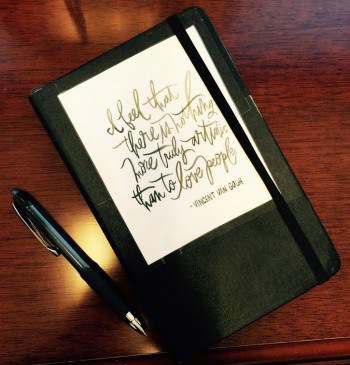 I feel that
there is nothing
more truly artistic
than to love people
- VINCENT VAN GOGH